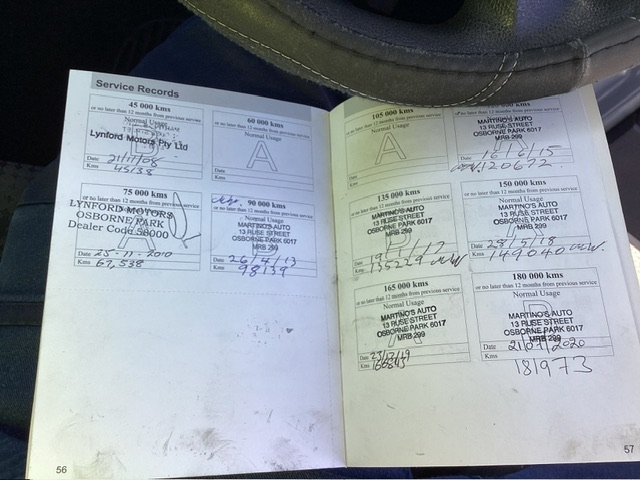 Service Records
45 000 kms
or no later than 12 months from previous service
Normal Usage
Lynford Motors Pty Ltd
Date 21/11/08
Kms 45138
60 000 kms
or no later than 12 months from previous service
Normal Usage
A
Date
Kms
75 000 kms
or no later than 12 months from previous service
LYNFORD MOTORS
OSBORNE PARK
Dealer Code 58000
Date 25-11-2010
Kms 67,538
90 000 kms
or no later than 12 months from previous service
MARTINO'S AUTO
13 RUSE STREET
OSBORNE PARK 6017
MRB 299
Date 26/4/13
Kms 98139
56
105 000 kms
or no later than 12 months from previous service
Normal Usage
A
Date
Kms
MARTINO'S AUTO
13 RUSE STREET
OSBORNE PARK 6017
MRB 299
Date 16/6/15
120672
135 000 kms
or no later than 12 months from previous service
MARTINO'S AUTO
13 RUSE STREET
OSBORNE PARK 6017
MRB 299
Date
Kms 135229
150 000 kms
or no later than 12 months from previous service
MARTINO'S AUTO
13 RUSE STREET
OSBORNE PARK 6017
MRB 299
Date 28/5/18
Kms 149040
165 000 kms
or no later than 12 months from previous service
Normal Usage
MARTINO'S AUTO
13 RUSE STREET
OSBORNE PARK 6017
MRB 299
Date
Kms
180 000 kms
or no later than 12 months from previous service
Normal Usage
MARTINO'S AUTO
13 RUSE STREET
OSBORNE PARK 6017
MRB 299
Date 21/01/2020
Kms
181973
57